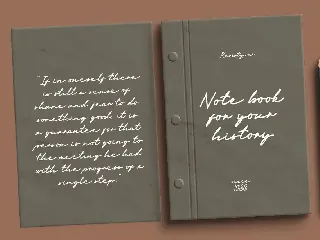 "If in oneself there
is still a sense of
shame and fear to do
something good, it is
a guarantee for that
person is not going to
the meeting he had
with the progress of a
single step."
Note book
for your
history